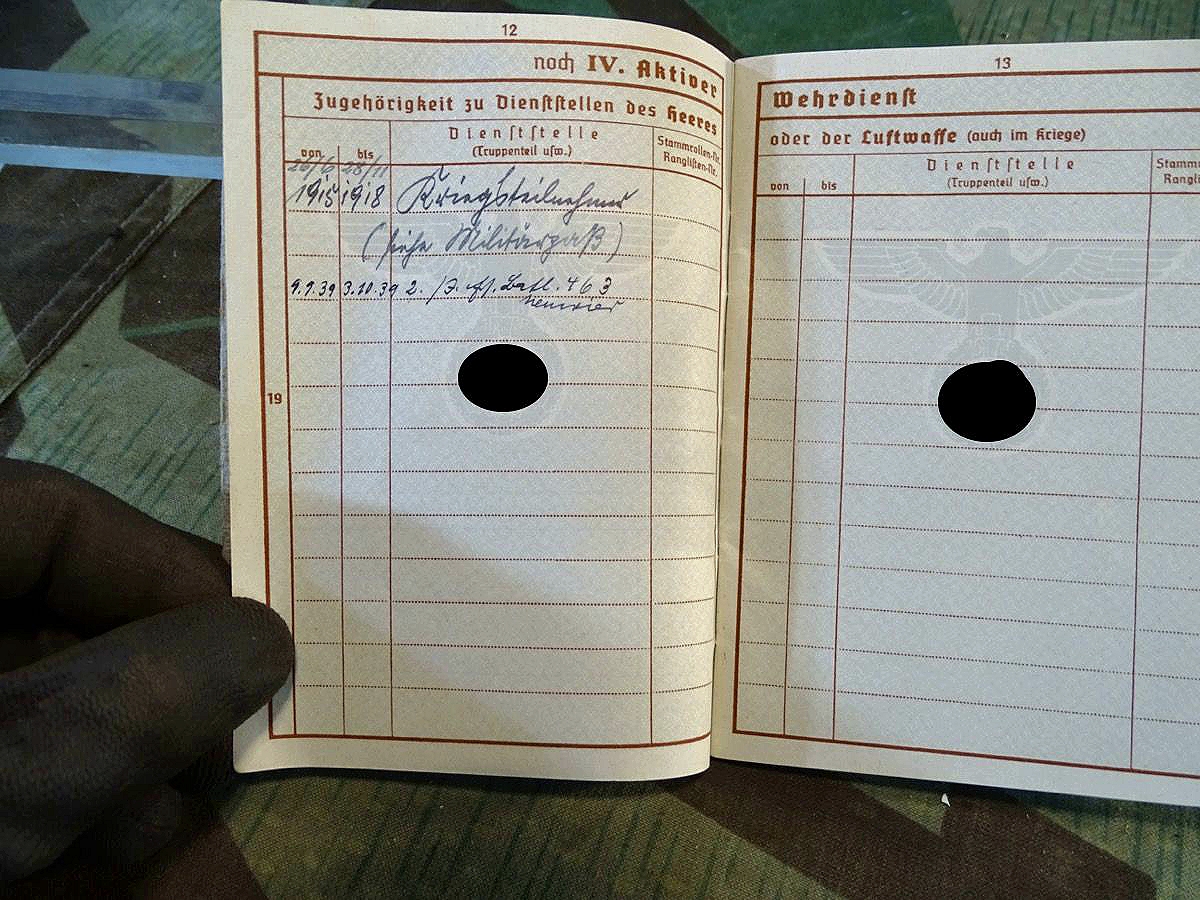 12
noch IV. Aktiver
Zugehörigkeit zu Dienststellen des Heeres
von
bis
Dienststelle
(Truppenteil usw.)
Stammrollen-Nr.
Ranglisten-Nr.
26/6 28/11
1915 1918 Kriegsteilnehmer
(siehe Militärpaß)
9.9.39 3.10.39 2. Batl. 463
19
13
Wehrdienst
oder der Luftwaffe (auch im Kriege)
von
bis
Dienststelle
(Truppenteil usw.)